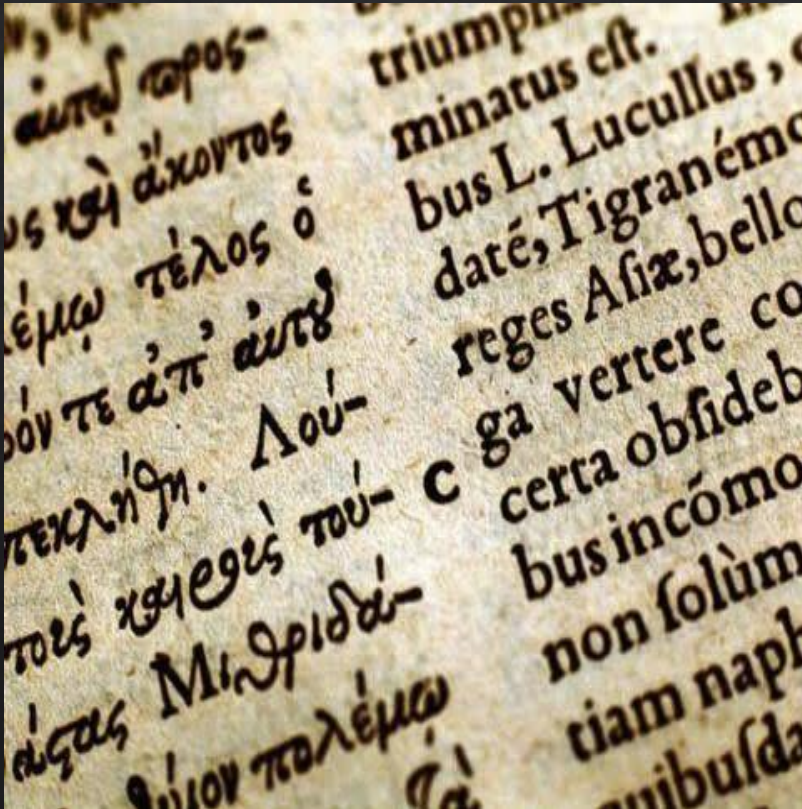 αὐτῷ προς-
καὶ ἄκοντος
τέλος ὁ
τε ἀπ' αὐτοῦ
Λού-
τοὺς καιροὺς τού-
Μιθριδά-
πολέμῳ
minatus eſt.
bus L. Lucullus,
daté, Tigranémq
reges Aſiæ, bello
ga vertere co
C
certa obſideb
bus incómo
non ſolùm
tiam naph
quibuſda